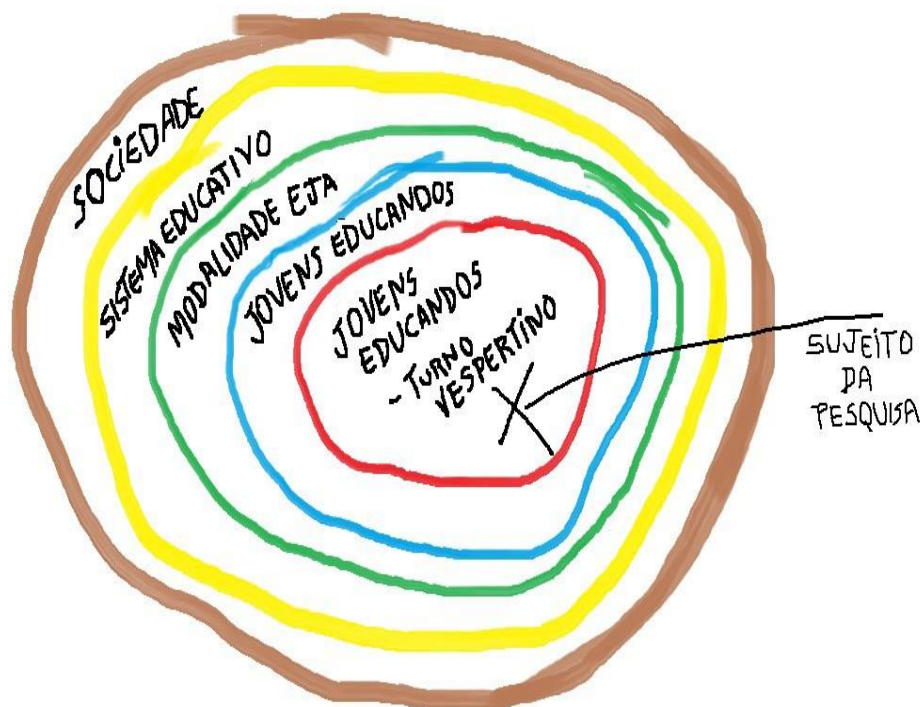 SOCIEDADE
SISTEMA EDUCATIVO
MODALIDADE EJA
JOVENS EDUCANDOS
JOVENS
EDUCANDOS
- TURNO
VESPERTINO
SUJEITO
DA
PESQUISA